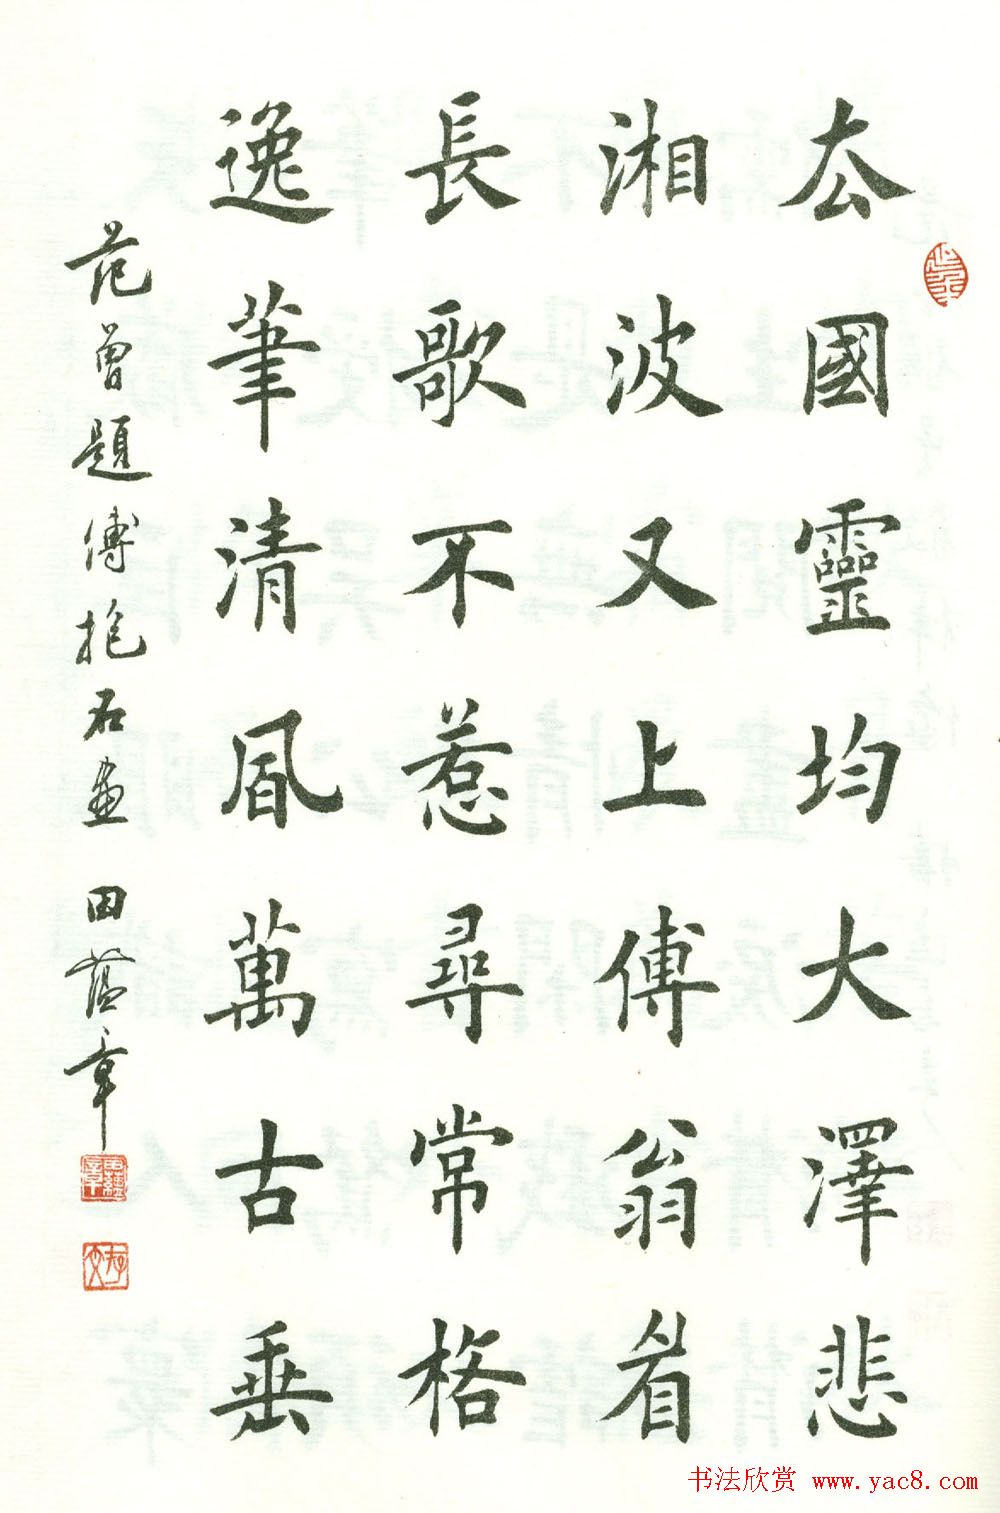 厺國靈均大澤悲
湘波又上傅翁眉
長歌不惹尋常格
逸筆清風萬古垂
范曾題傅抱石畫 田蘊章
田蘊章
书法欣赏 www.yac8.com